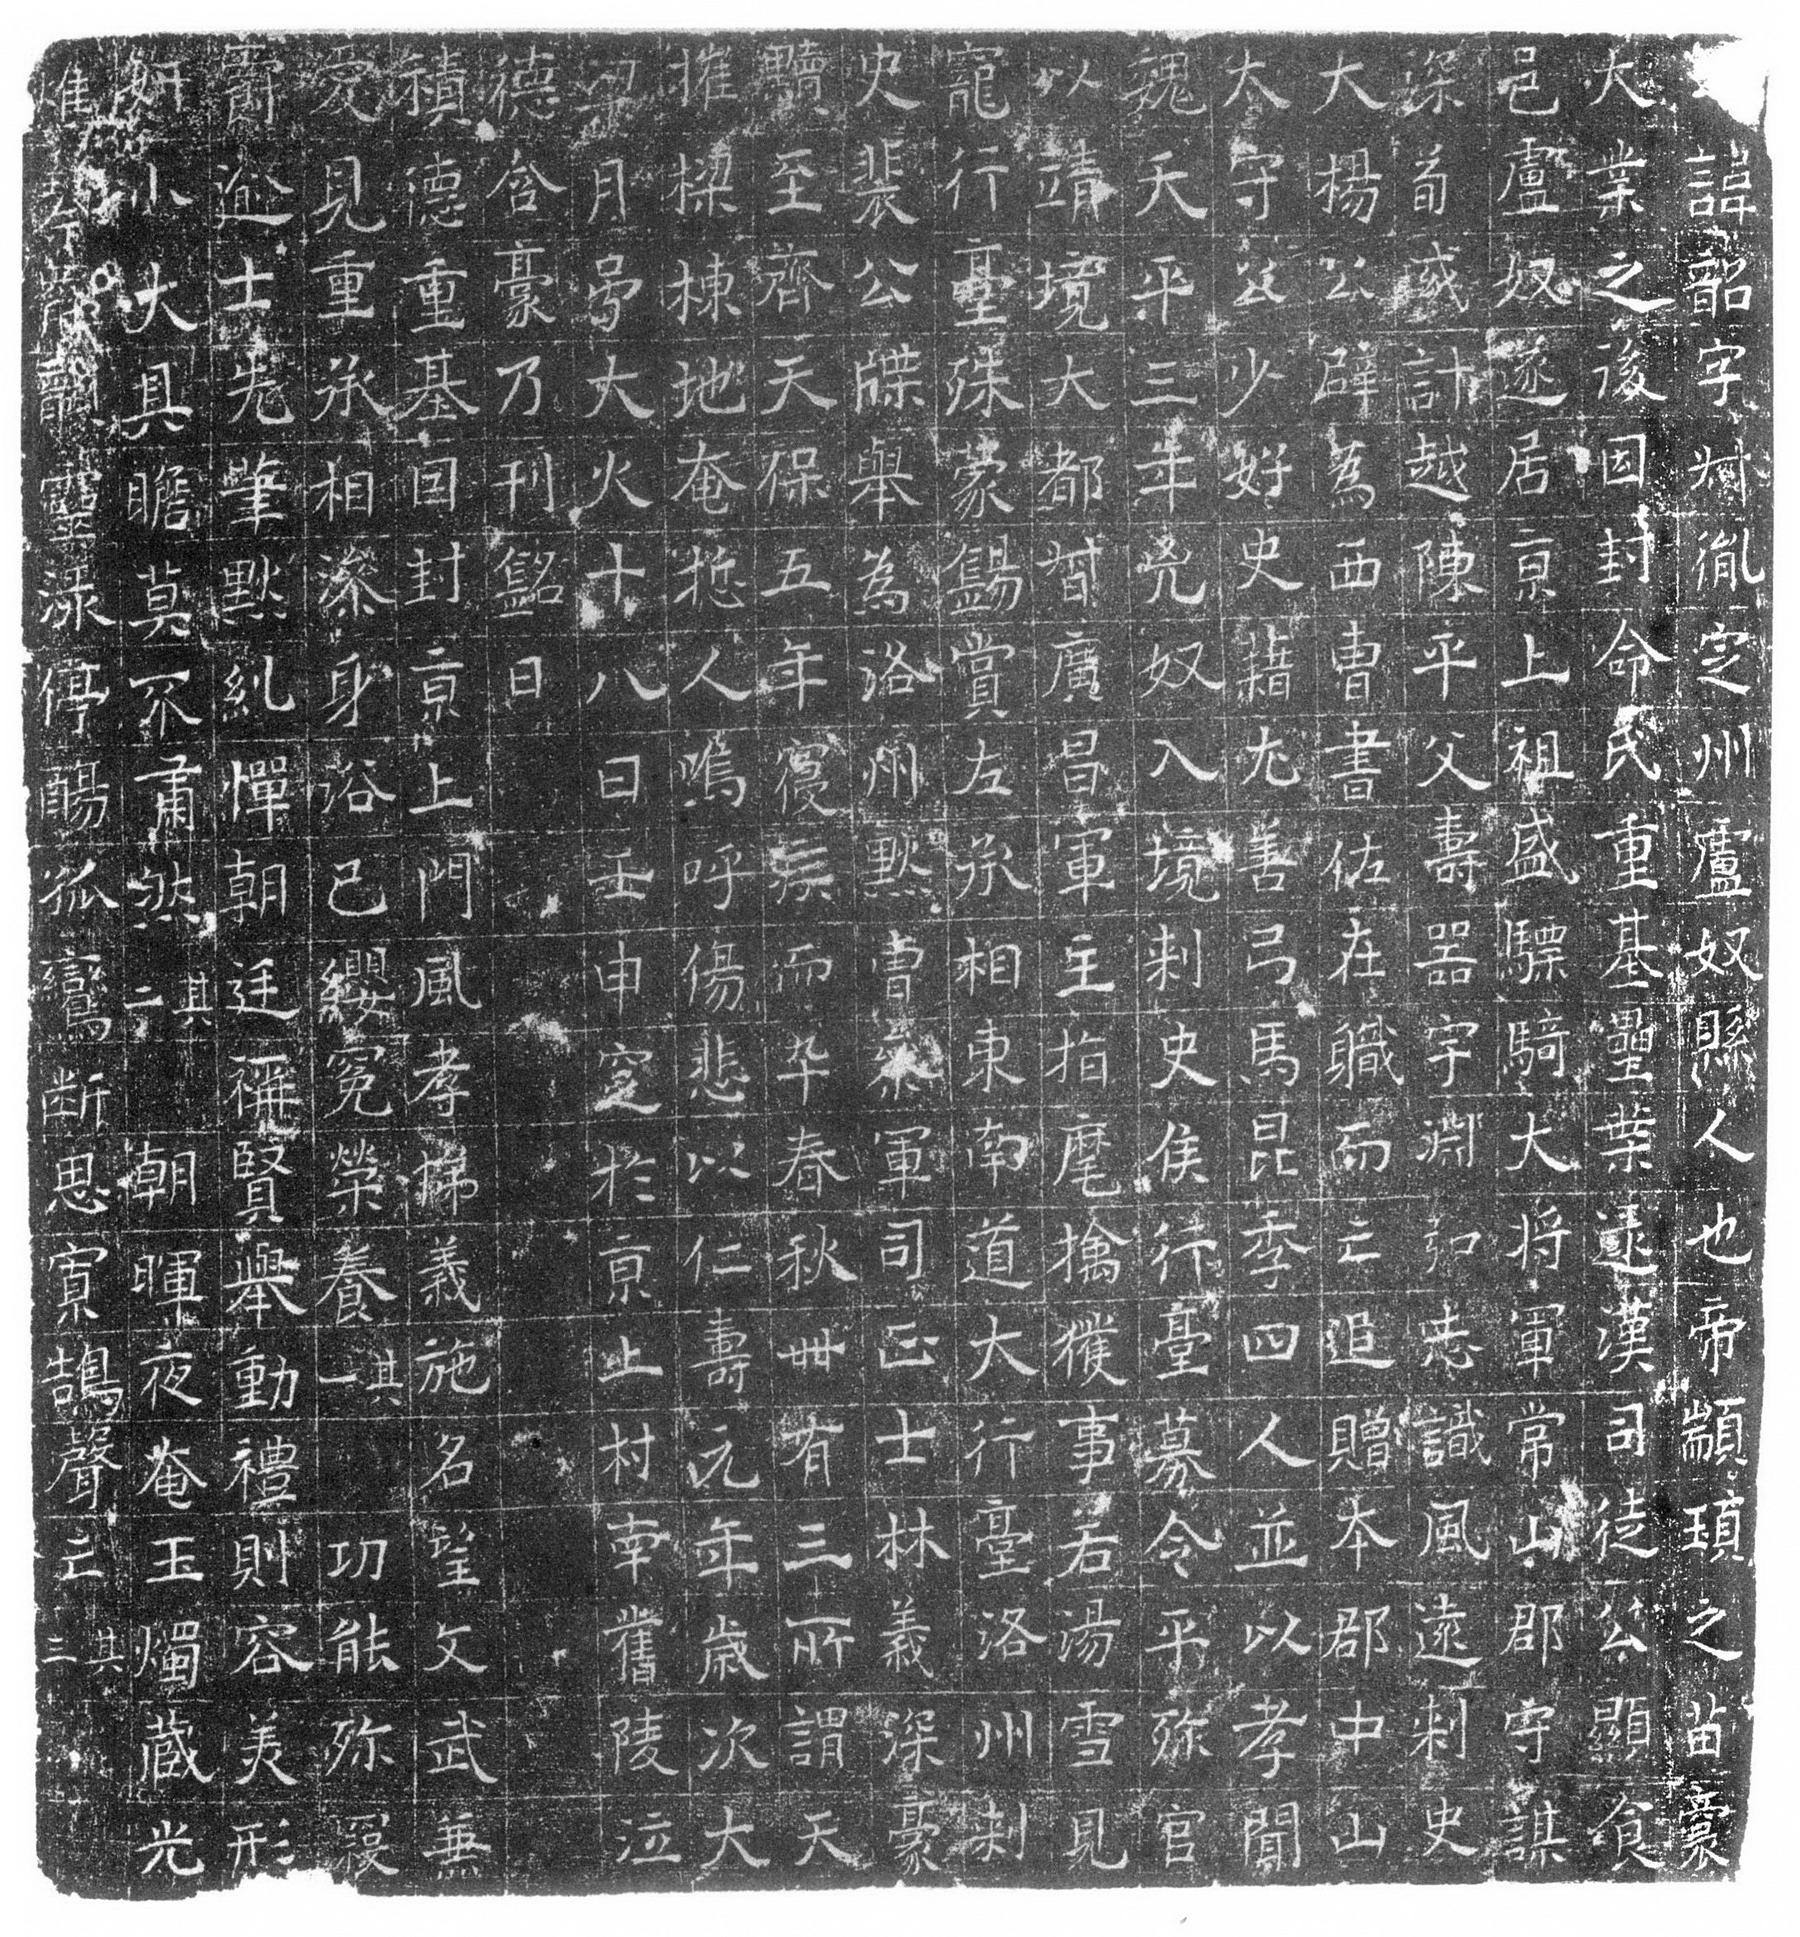 諱韶字斌胤定州盧奴縣人也帝顓頊之苗裔
大業之後因封命民重基壘葉遠漢司徒公顯食
邑盧奴遂居京上祖盛驃騎大將軍常山郡守謀
深荀彧計越陳平父壽器宇淵弘志識風遠刺史
大楊公辟為西曹書佐在職而亡追贈本郡中山
太守公少好史籍尤善弓馬昆季四人並以孝聞
魏天平三年兇奴入境刺史侯行臺募令平殄官
以靖境大都督廣昌軍主指麾擒獲事若湯雪見
寵行臺殊蒙錫賞左丞相東南道大行臺洛州刺
史裴公牒舉為洛州默曹參軍司正士林義深豪
黷至齊天保五年寢疾而卒春秋卌有三所謂天
摧樑棟地奄悊人嗚呼傷悲以仁壽元年歲次大
梁月号大火十八日壬申窆於京止村南舊陵泣
德含豪乃刊銘曰
禎德重基因封京上門風孝悌義施名望文武兼
爰見重承相滲身浴己纓冕榮養其一功能殄寇
爵逾士先筆默糺憚朝廷稱賢舉動禮則容美形
妍小大具瞻莫不肅然其二朝暉夜奄玉燭蔵光
停觴孤鸞斷思寡鵠聲亡其三